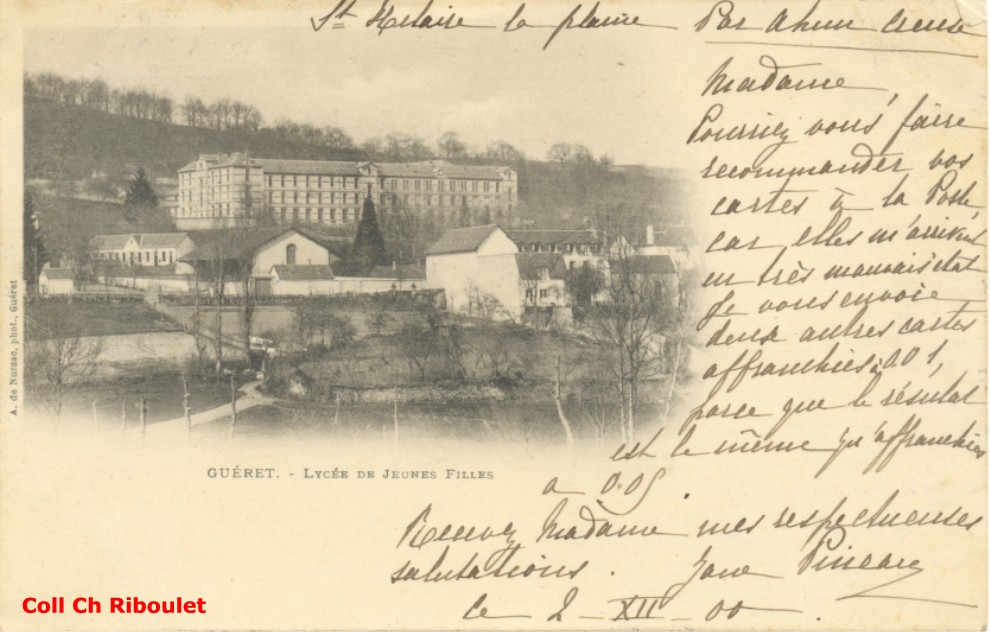 St Hilaire la plaine Par Ahun Creuse
Madame,
Pourriez vous faire
recommander vos
cartes à la Poste
car elles m'arrivent
en très mauvais état
Je vous envoie
deux autres cartes
affranchies à 0 01,
parce que le résultat
est le même qu'affranchies
a 0.05.
Recevez Madame mes respectueuses
salutations. Jane Pineau
le 2 - XII - 00
GUÉRET. - LYCÉE DE JEUNES FILLES
A. de Nussac, phot., Guéret
Coll Ch Riboulet